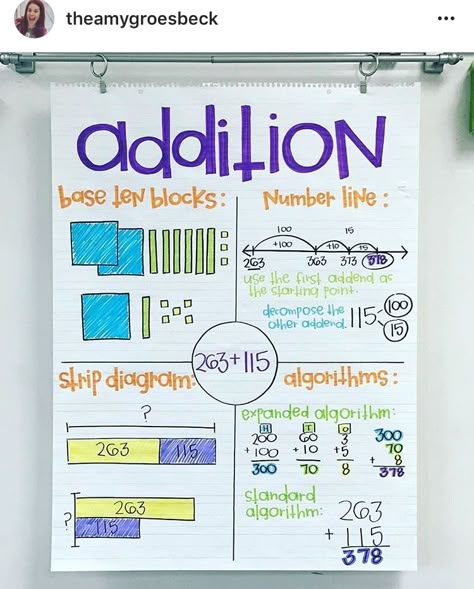 theamygroesbeck
addition
base ten blocks:
Number line:
100 15
+100 +10 +5
263 363 373 378
use the first addend as
the starting point.
decompose the
other addend.
115
100
15
263+115
strip diagram:
?
263 115
?
263
115
algorithms:
expanded algorithm:
H T O
200 60 3 300
+100 +10 +5 70
300 70 8 + 8
378
standard
algorithm:
263
+ 115
378